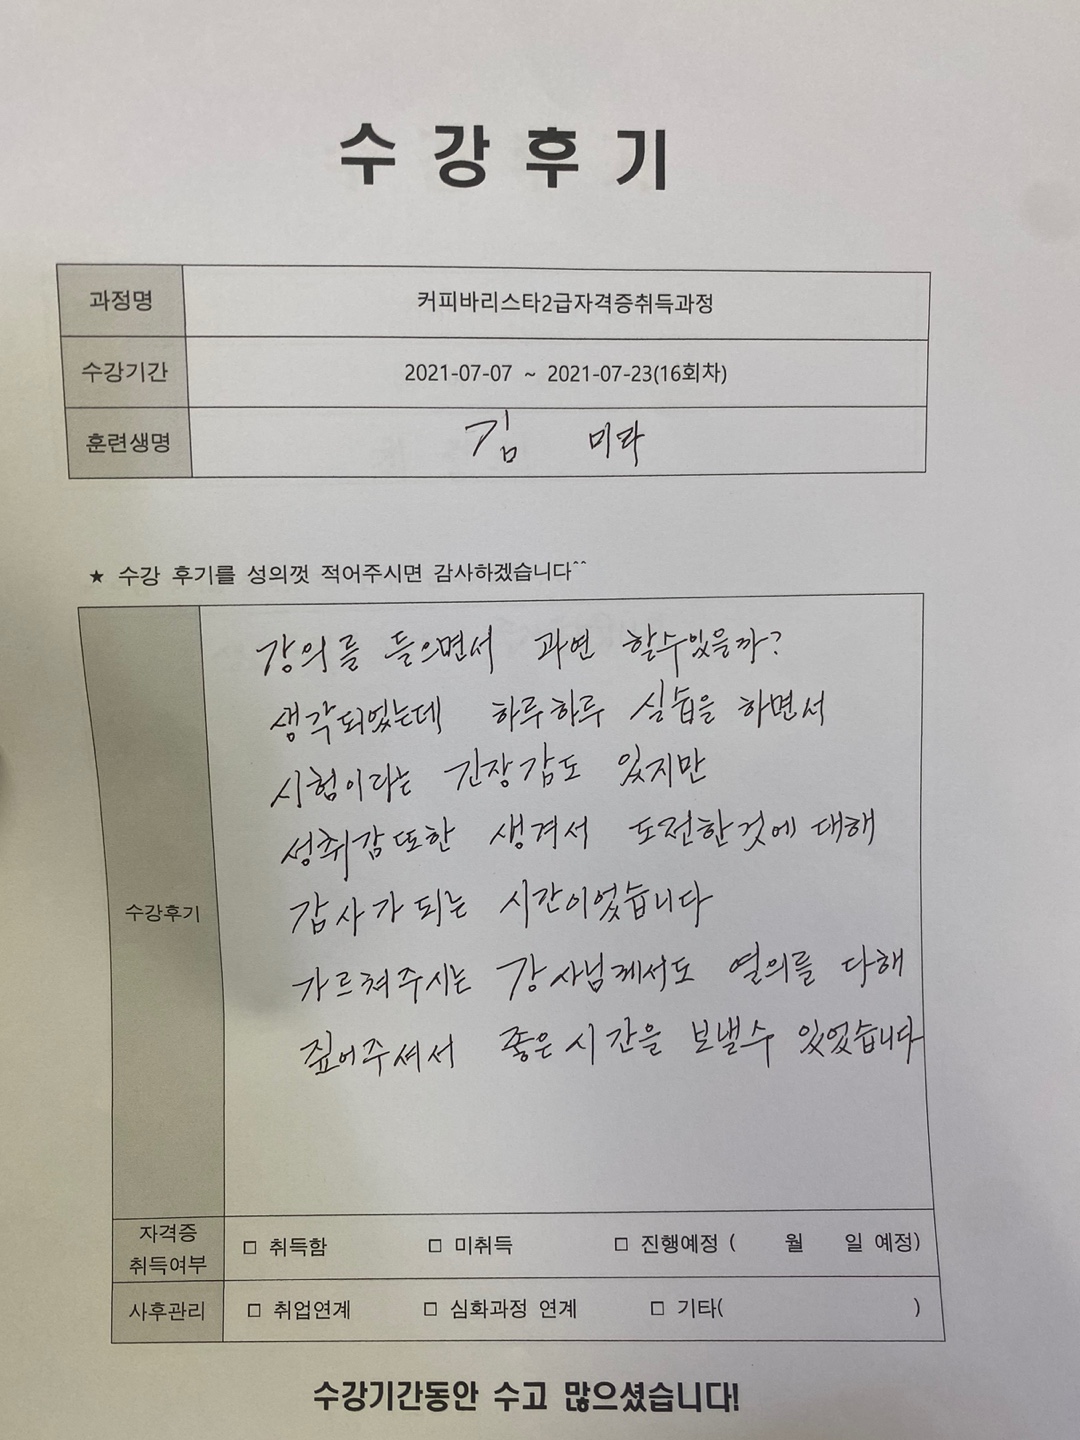 수강후기
과정명 커피바리스타2급자격증취득과정
수강기간 2021-07-07 ~ 2021-07-23(16회차)
훈련생명 김 미라
★ 수강 후기를 성의껏 적어주시면 감사하겠습니다^^
강의를 들으면서 과연 할수있을까?
생각되었는데 하루하루 실습을 하면서
시험이라는 긴장감도 있지만
성취감 또한 생겨서 도전한것에 대해
감사가 되는 시간이었습니다
수강후기
가르쳐주시는 강사님께서도 열의를 다해
짚어주셔서 좋은 시간을 보낼수 있었습니다
자격증
취득여부 □ 취득함 □ 미취득 □ 진행예정 ( 월 일 예정)
사후관리 □ 취업연계 □ 심화과정 연계 □ 기타( )
수강기간동안 수고 많으셨습니다!